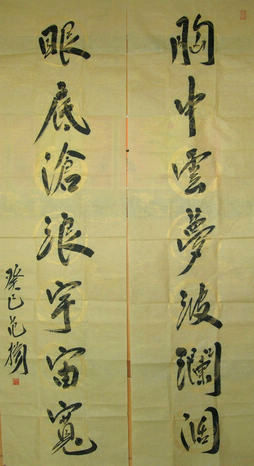 胸中雲夢波瀾闊
眼底滄浪宇宙寬
癸巳范揚